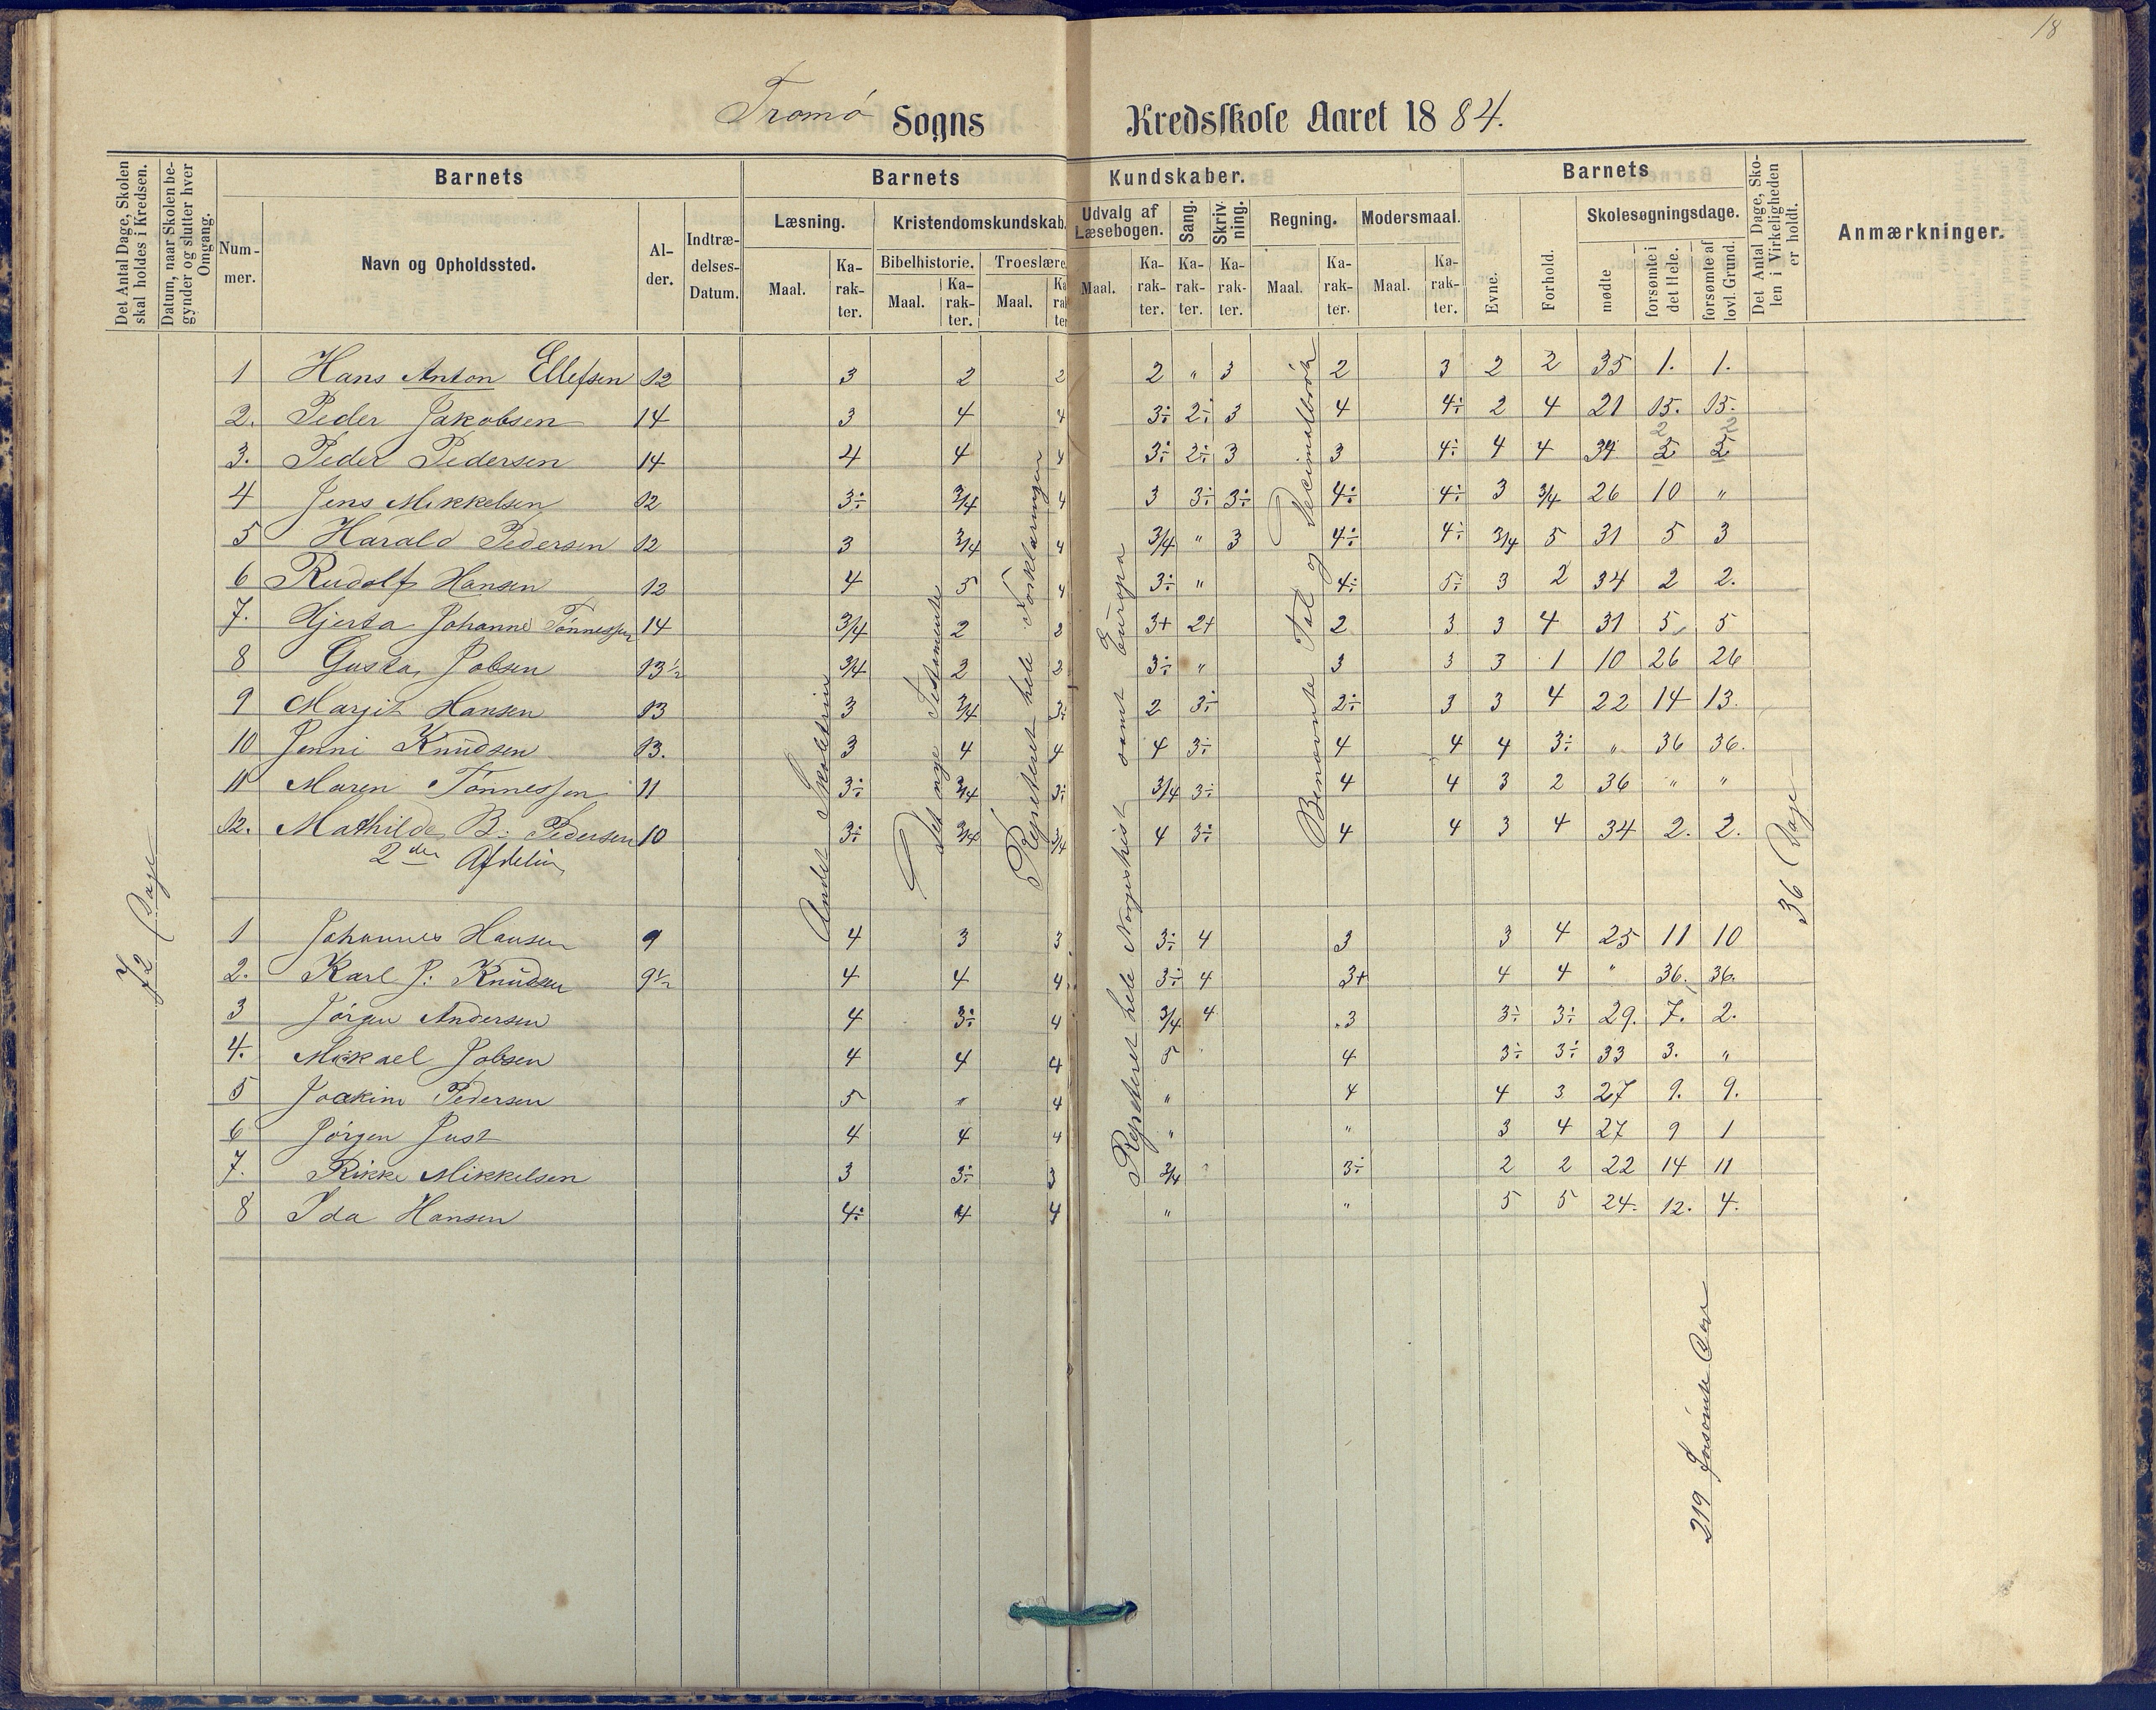 18
Tromö Sogns Kredsskole Aaret 1884.
Det Antal Dage, Skolen skal holdes i Kredsen.
Datum, naar Skolen begynder og slutter hver Omgang.
Barnets
Nummer.
Navn og Opholdssted.
Alder.
Indtrædelses-Datum.
Barnets Kundskaber.
Læsning.
Maal. Karakter.
Kristendomskundskab.
Bibelhistorie. Troeslære
Maal. Karakter. Maal. Karakter
Udvalg af Læsebogen.
Maal. Karakter.
Sang.
Karakter.
Skrivning.
Karakter.
Regning.
Maal. Karakter.
Modersmaal.
Maal. Karakter.
Barnets
Evne.
Forhold.
Skolesøgningsdage.
mødte
forsømte i det Hele.
forsømte af lovl. Grund.
Det Antal Dage, Skolen i Virkeligheden er holdt.
Anmærkninger.
1 Hans Anton Ellefsen 12 3 2 2 2 " 3 2 3 2 2 35 1. 1.
2. Peder Jakobsen 14 3 4 4 3÷ 2÷ 3 4 4÷ 2 4 21 15. 15.
3. Peder Pedersen 14 4 4 4 3÷ 2÷ 3 3 4÷ 4 4 34 2 2
4 Jens Mikkelsen 12 3÷ 3/4 4 3 3÷ 3÷ 4÷ 4÷ 3 3/4 26 10 "
5 Harald Pedersen 12 3 3/4 4 3/4 " 3 4÷ 4÷ 3/4 5 31 5 3
6 Rudolf Hansen 12 4 5 4 3÷ " 4÷ 5÷ 3 2 34 2 2.
7. Hjerta Johanne Tönnessen 14 3/4 2 3 3+ 2+ 2 3 3 4 31 5 5
8 Gusta Jobsen 13½ 3/4 2 3 3÷ " 3 3 3 1 10 26 26
9 Margit Hansen 13 3 3/4 3÷ 2 3÷ 2÷ 3 3 4 22 14 13.
10 Jenni Knudsen 13. 3 4 4 4 3÷ 4 4 4 3÷ " 36 36.
11 Maren Tönnessen 11 3÷ 3/4 3÷ 3/4 3÷ 4 4 3 2 36 " "
12. Mathilde B: Pedersen 10 3÷ 3/4 3/4 4 3÷ 4 4 3 4 34 2. 2.
2den Afdelin
1 Johannes Hansen 9 4 3 3 3÷ 4 3 3 4 25 11 10
2. Karl J: Knudsen 9½ 4 4 4 3÷ 4 3+ 4 4 " 36. 36.
3 Jörgen Andersen 4 3÷ 4 3/4 4 3 3÷ 3÷ 29. 7. 2.
4. Mikkael Jobsen 4 4 4 5 4 3÷ 3÷ 33 3. "
5 Joakim Pedersen 5 " 4 " 4 4 3 27 9. 9.
6 Jörgen Just 4 4 4 " " 3 4 27 9 1
7. Rikke Mikkelsen 3 3÷ 3 3/4 " 3÷ 2 2 22 14 11
8 Ida Hansen 4÷ 4 4 " " 5 5 24. 12. 4.
72 Dage
Andet Skoletrin
Det nye Testamente
Repeteret hele Forklaringen
Repeteret hele Norgeshist samt Europa
Benævnte Tal og Decimalbrök
36 Dage
219 forsömte Dage